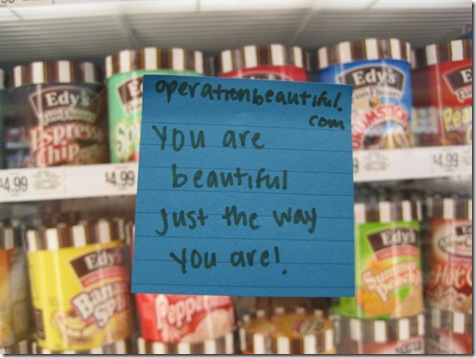 operationbeautiful.
com
You are
beautiful
just the way
you are!
Edy's
Espresso
Chip
Edy's
Edy's
Edy's
$4.99
4.99
$4.99
Edy's
Edy's